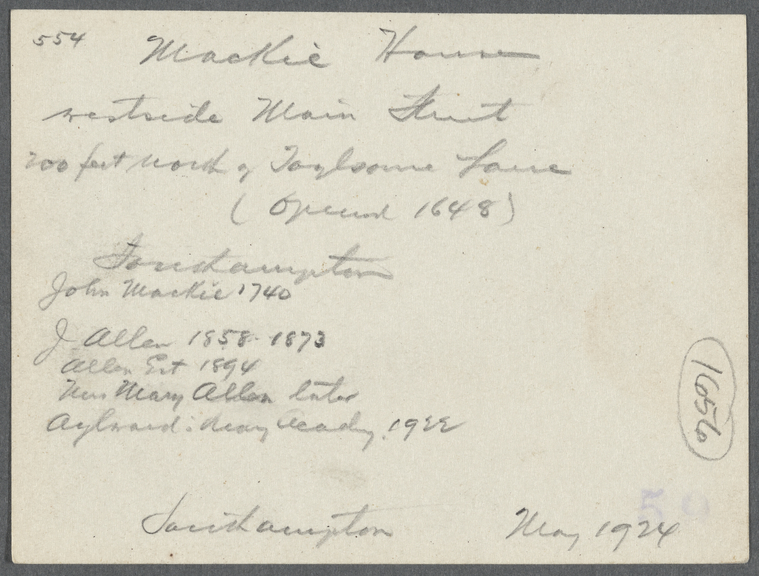 554 Mackie House
westside Main Street
200 feet north of Toylsome Lane
(Opened 1648)
Southampton
John Mackie 1740
J. Allen 1858-1873
Allen Est 1894
Mrs Mary Allen later
Aylward: Mary 1922
1656
59
Southampton May 1924